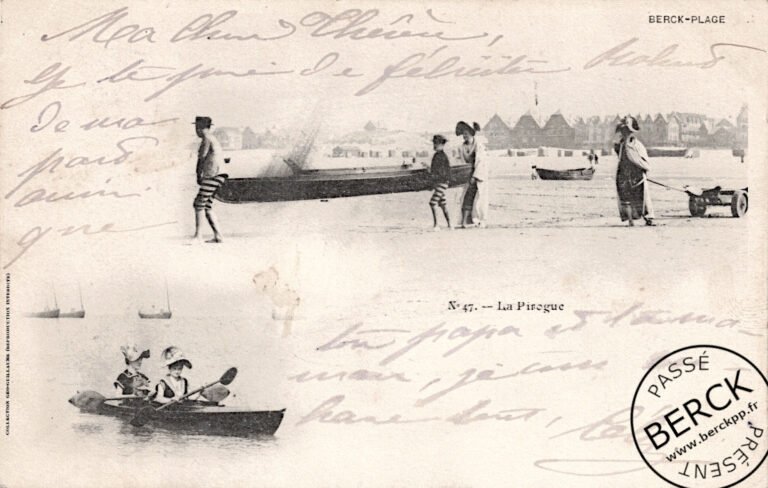 BERCK-PLAGE
Ma chère Thérèse,
Je te prie de féliciter Roland
de ma
part
ainsi
que
No 47. — La Pirogue
ton papa et ta ma-
man, je
tout,
COLLECTION GROSGUILLAUME (REPRODUCTION INTERDITE)
PASSÉ
BERCK
www.berckpp.fr
PRÉSENT